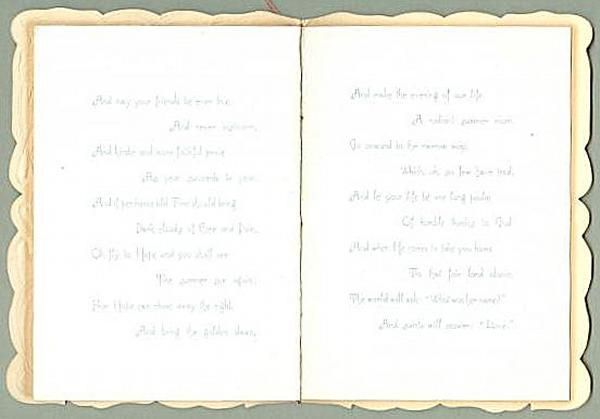 And may your friends be ever true,
And never
And kinder and more faithful prove
As year succeeds to year.
And if perchance old Time should bring
Dark clouds of Care and Pain,
Oh fly to Hope and you shall see
The summer sun again;
For Hope can chase away the night
And bring the golden dawn,
And make the evening of our life
A radiant summer morn.
Go onward in the narrow way,
Which, oh, so few have trod,
And let your life be one long psalm
Of humble thanks to God
And when He comes to take you home
To that fair land above,
The world will ask: "What was her name?"
And saints will answer: "Love."